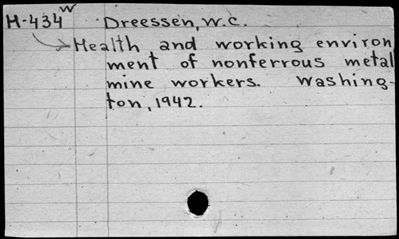 H-434W Dreessen, W.C.
Health and working environ
ment of nonferrous metal
mine workers. Washing-
ton, 1942.